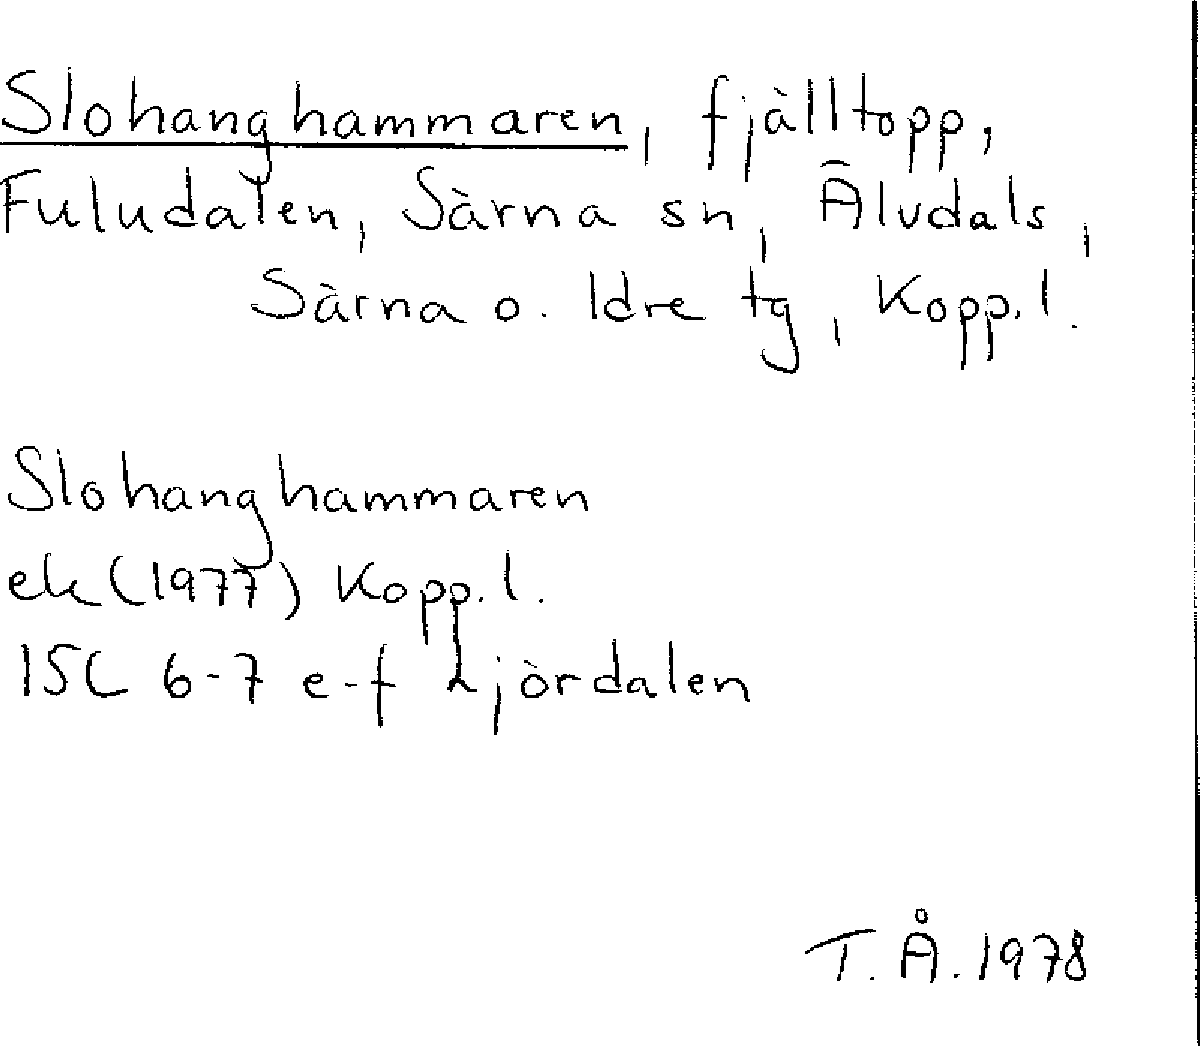 Slohanghammaren, fjälltopp,
Fuludalen, Särna sn, Älvdals,
Särna o. Idre tg, Kopp. l.
Slohanghammaren
ek (1977) Kopp. l.
15C 6-7 e-f Ljördalen
T. Å. 1978